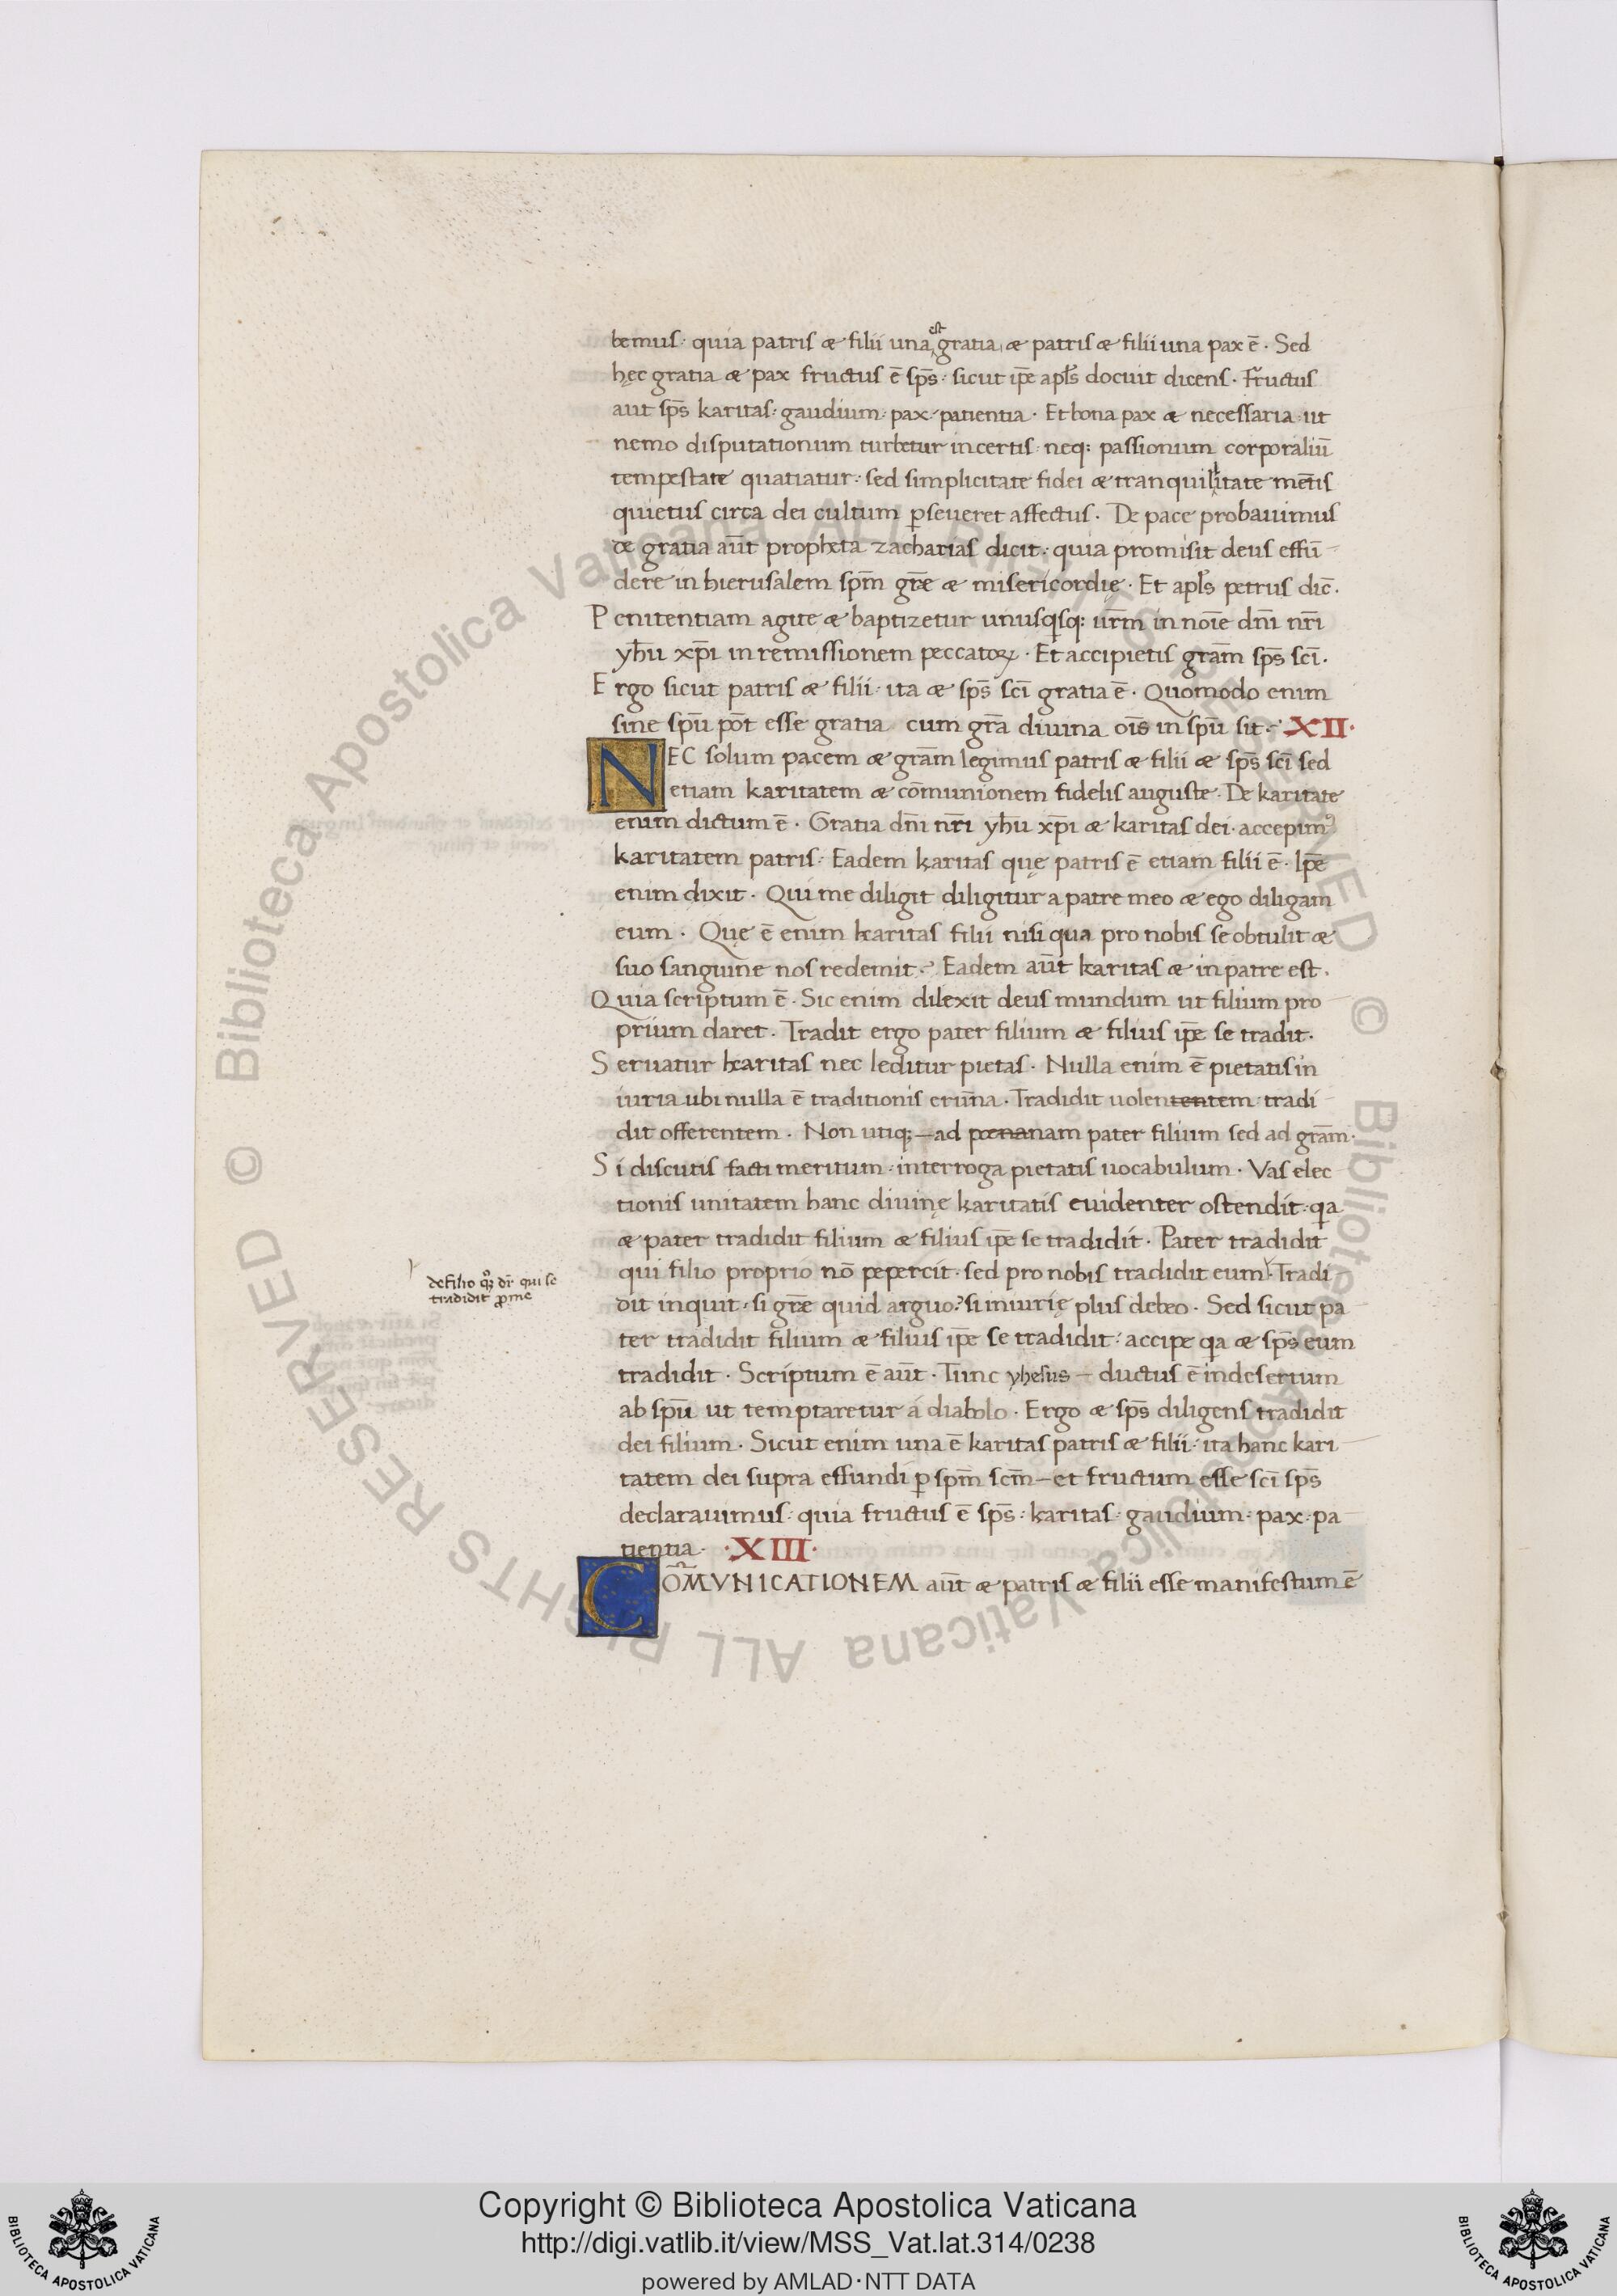 bemus · quia patris & filii una est gratia & patris & filii una pax ē · Sed
hęc gratia & pax fructus ē sp̄s · sicut ip̄e apl̄s docuit dicens · Fructus
aut sp̄s karitas · gaudium · pax · patientia · Et bona pax & necessaria · ut
nemo disputationum turbetur incertis · neq; passionum corporaliū
tempestate quatiatur · sed simplicitate fidei & tranquillitate mēt̄is
quietus circa dei cultum p̱seueret affectus · De pace probauimus
de gratia aūt propheta zacharias dicit · quia promisit deus effū
dere in hierusalem sp̄m gr̄e & misericordię · Et apl̄s petrus dic̄ ·
Penitentiam agite & baptizetur unusqisq; ur̄m in noīe dn̄i nr̄i
yh̄u xp̄i in remissionem peccatoꝝ · Et accipietis grām sp̄s scī ·
Ergo sicut patris & filii · ita & sp̄s scī gratia ē · Quomodo enim
sine spū pōt esse gratia cum grā diuina oīs in spū sit · XII ·
NEC solum pacem & grām legimus patris & filii & sp̄s scī sed
etiam karitatem & cōmunionem fidelis auguste · De karitate
enim dictum ē · Gratia dn̄i nr̄i yh̄u xp̄i & karitas dei · accepimꝰ
karitatem patris · Eadem karitas quę patris ē etiam filii ē · Ip̄e
enim dixit · Qui me diligit diligitur a patre meo & ego diligam
eum · Quę ē enim karitas filii nisi qua pro nobis se obtulit &
suo sanguine nos redemit · Eadem aūt karitas & in patre est ·
Quia scriptum ē · Sic enim dilexit deus mundum ut filium pro
prium daret · Tradit ergo pater filium & filius ip̄e se tradit ·
Seruatur karitas nec leditur pietas · Nulla enim ē pietatis in
iuria ubi nulla ē traditionis erūna · Tradidit uolententem · tradi
dit offerentem · Non utiq; — ad pœnanam pater filium sed ad grām ·
Si discutis facti meritum · interroga pietatis uocabulum · Vas elec
tionis unitatem hanc diuinę karitatis euidenter ostendit · qa
& pater tradidit filium & filius ip̄e se tradidit · Pater tradidit
qui filio proprio nō pepercit · sed pro nobis tradidit eum · Tradi
de filio qꝫ dr̄ qui se
tradidit ꝓ me
dit inquit · si gr̄e quid arguo? si iniurię plus debeo · Sed sicut pa
ter tradidit filium & filius ip̄e se tradidit · accipe qa & sp̄s eum
tradidit · Scriptum ē aūt · Tunc yhesus — ductus ē in desertum
ab spū ut temptaretur á diabolo · Ergo & sp̄s diligens tradidit
dei filium · Sicut enim una ē karitas patris & filii · ita hanc kari
tatem dei supra effundi p̱ sp̄m scm̄ — et fructum esse scī sp̄s
declarauimus · quia fructus ē sp̄s · karitas · gaudium · pax · pa
tientia · · XIII ·
CŌMVNICATIONEM aūt & patris & filii esse manifestum ē
© Biblioteca Apostolica Vaticana ALL RIGHTS RESERVED © Biblioteca Apostolica Vaticana ALL RIGHTS RESERVED
Copyright © Biblioteca Apostolica Vaticana
http://digi.vatlib.it/view/MSS_Vat.lat.314/0238
powered by AMLAD·NTT DATA
BIBLIOTECA APOSTOLICA VATICANA
BIBLIOTECA APOSTOLICA VATICANA